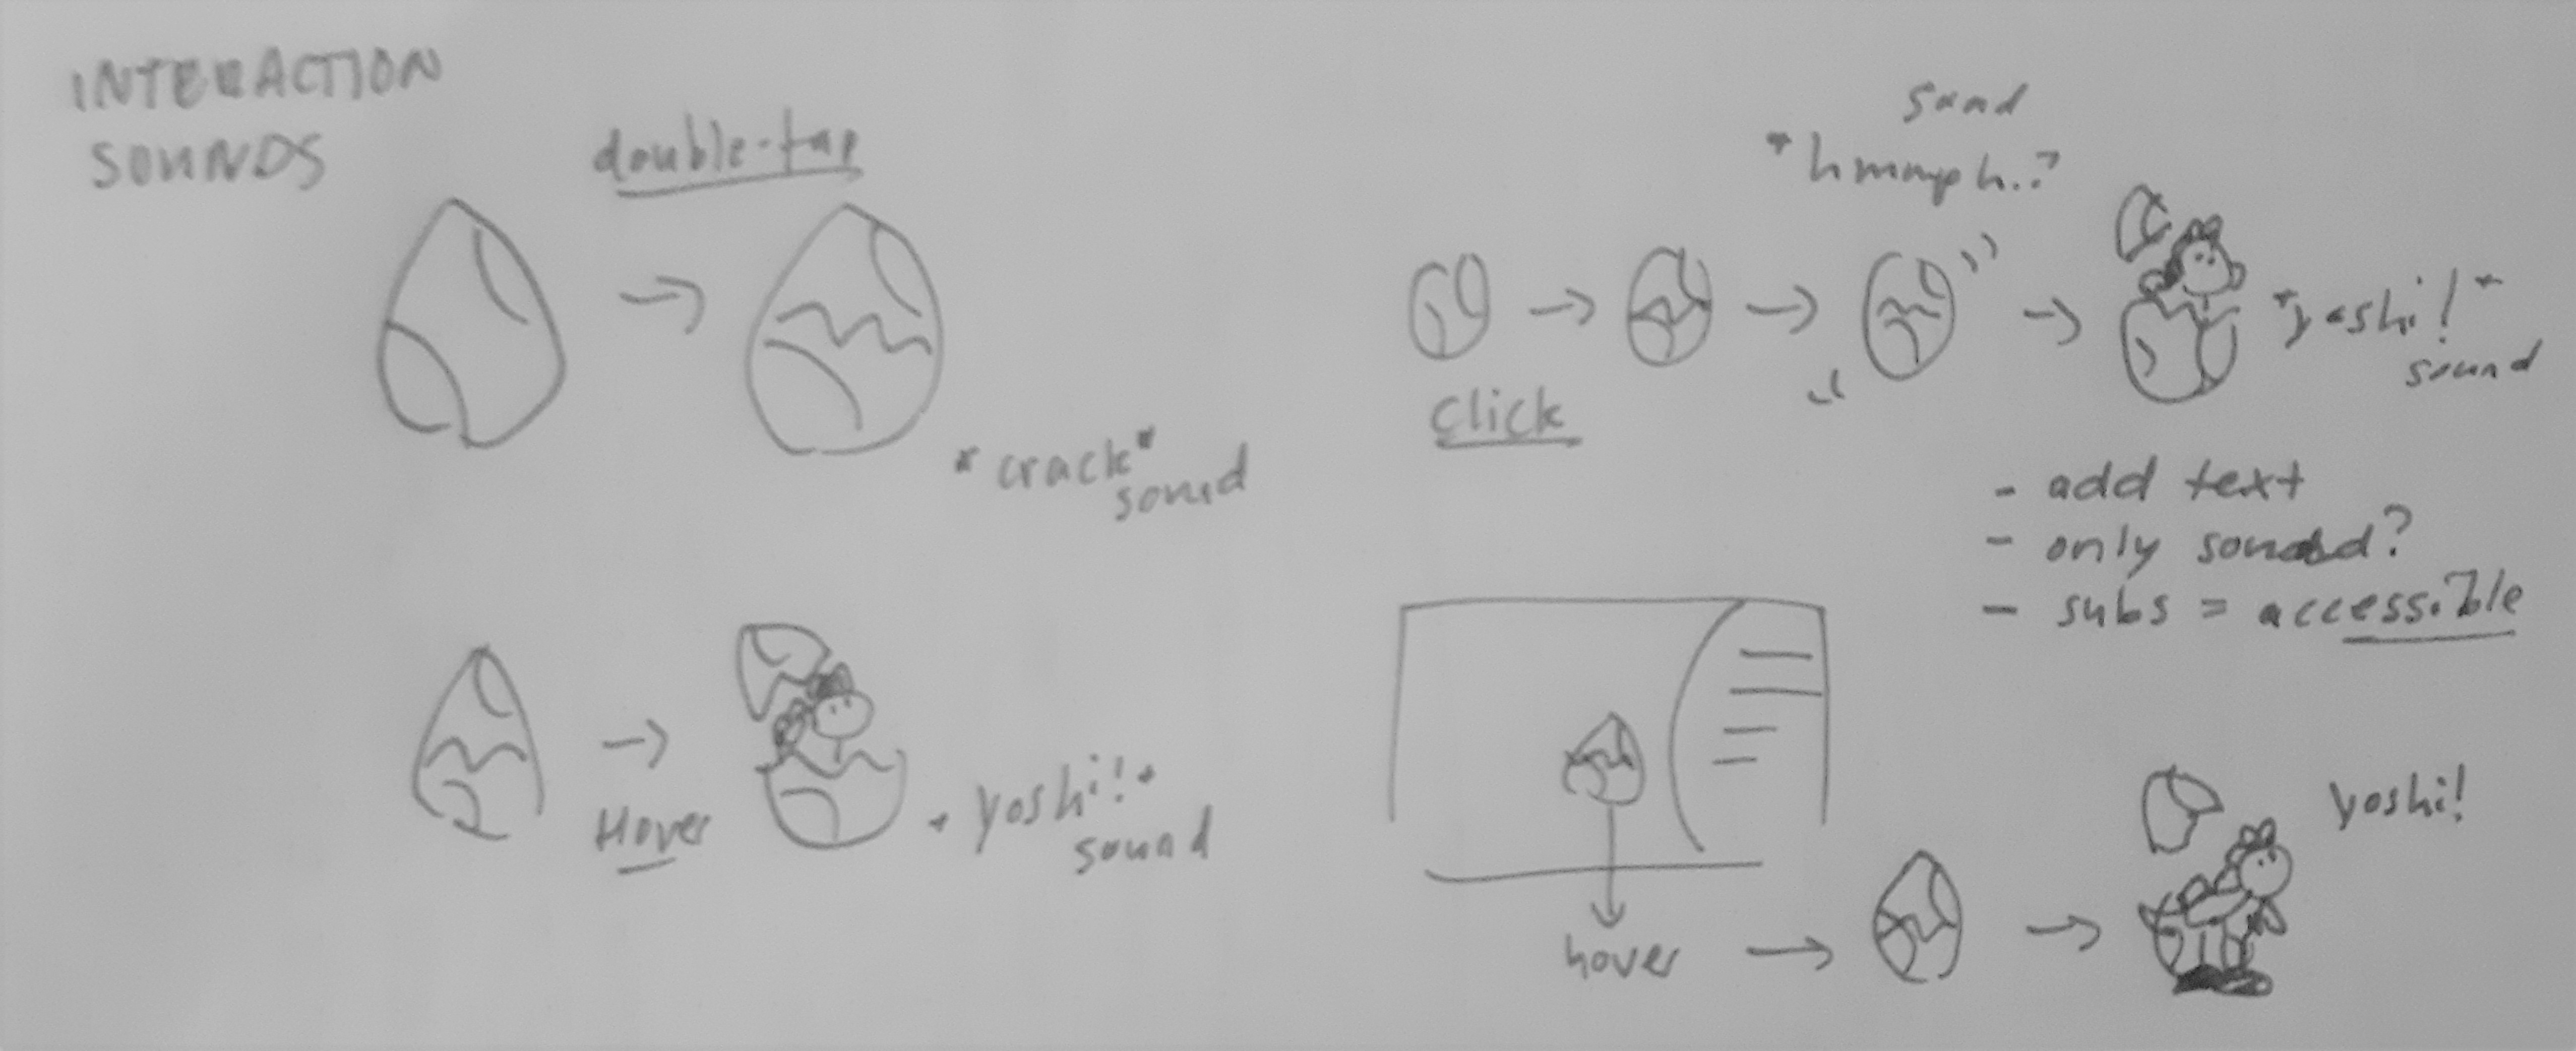 INTERACTION
SOUNDS
double-tap
*crack*
sound
Hover
*yoshi!*
sound
sound
*hmmph..?
click
*yoshi!*
sound
- add text
- only sound?
- subs = accessible
hover
yoshi!